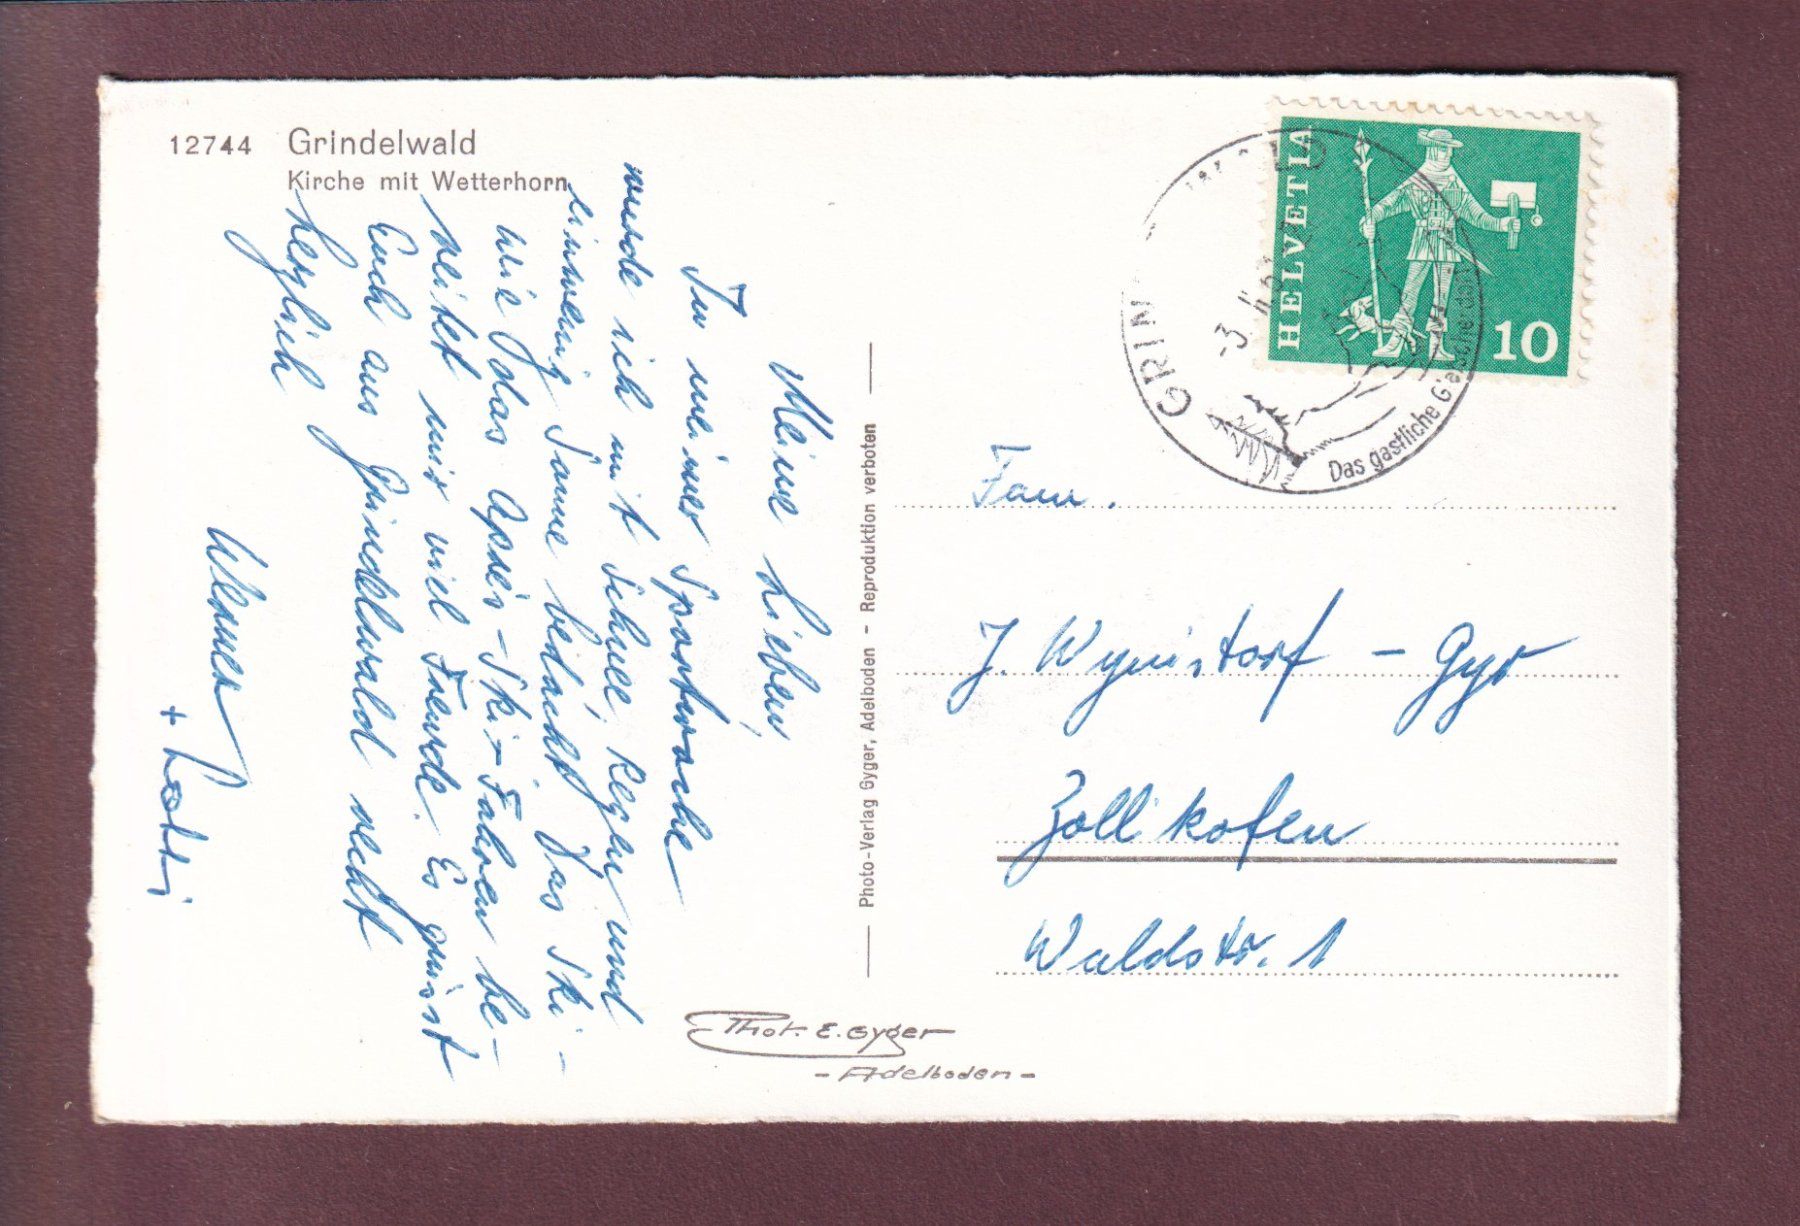 12744 Grindelwald
Kirche mit Wetterhorn
Meine Lieben,
In meiner Sportwoche
wurde ich mit Schnee, Regen und
einwenig Sonne bedacht. Das Ski-
wie das Après-Ski-Fahren be-
reitet mir viel Freude. Es grüsst
Euch aus Grindelwald recht
herzlich
Werner
+
Photo-Verlag Gyger, Adelboden - Reproduktion verboten
Phot. E. Gyger
- Adelboden -
HELVETIA
10
GRIN
-3.
Das gastliche Gletscherdorf
Fam.
J. Wynistorf - Gyr
Zollikofen
Waldstr. 1